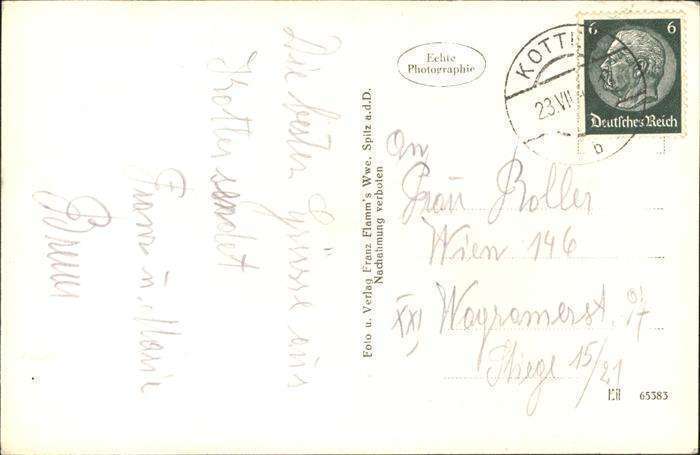 Die besten Grüsse aus
Kottes sendet
Franz u. Marie
Echte
Photographie
Foto u. Verlag Franz Flamm's Wwe. Spitz a.d.D.
Nachahmung verboten
KOTT
23.VII
b
6 6
Deutsches Reich
An
Frau Roller
Wien 146
XXI Wagramerst. 97
Stiege 15/21
65383